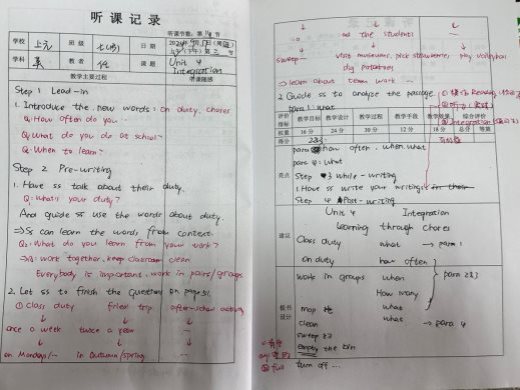 听课记录
听课节数:第 节
学校 上元 班级 七(3) 日期
学科 英 教者 课题 Unit 4 Integration
教学主要过程 听课随感
Step 1 Lead-in
1. Introduce the new words: on duty, chores
Q: How often do you ...
Q: What do you do at school?
Q: When to learn?
Step 2 Pre-writing
1. Have ss talk about their duty.
Q: What's your duty?
And guide ss use the words about duty.
⇒ Ss can learn the words from context.
Q2: What do you learn from your work?
⇒ work together, keep classroom clean
Everybody is important. work in pairs/groups
2. Let ss to finish the Question on page 51
① class duty field trip after-school activity
↓ ↓ ↓
once a week twice a year ...
↓ ↓ ↓
on Mondays/... in Autumn/spring ...
↓ ↓ ↓
... all the students ...
↓ ↓ ↓
sweep... visit museums, pick strawberries, play volleyball
dig potatoes
⇒ learn about team work ...
2. Guide ss to analyze the passage.
para 1: what
评价指标 教学目标 教学设计 教学过程 教学手段 教学效果 综合评价
权重 16分 24分 30分 12分 18分 总分 等第
得分
para how often. when. what
para 4: what
亮点
Step 3 while-writing
1. Have ss write your writing
Step 4 Post-writing
建议
Unit 4 Integration
Learning through Chores
Class duty what → para 1
on duty how often
work in groups when para 2&3
How many
板书设计
mop what
clean what → para 4
sweep
empty the bin
turn off ...